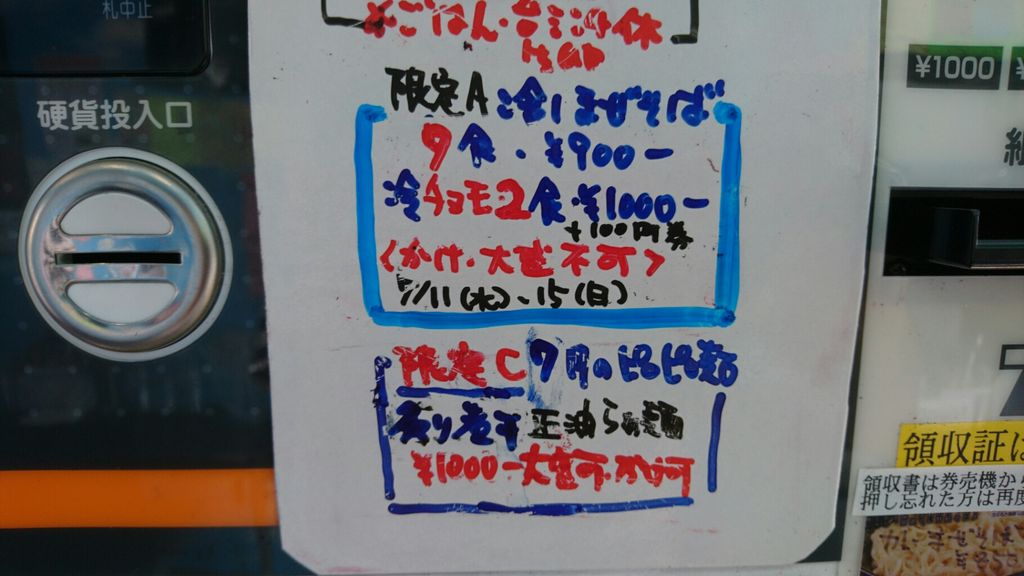 札中止
硬貨投入口
※ごはん・
限定A 冷しまぜそば
9食・¥900-
冷チョモ2食・¥1000-
+100円券
<かけ・大盛不可>
7/11(水)、15(日)
限定C 7月の
正油らぁ麺
¥1000-大盛可・かけ可
¥1000
領収証は
領収書は券売機か
押し忘れた方は再度